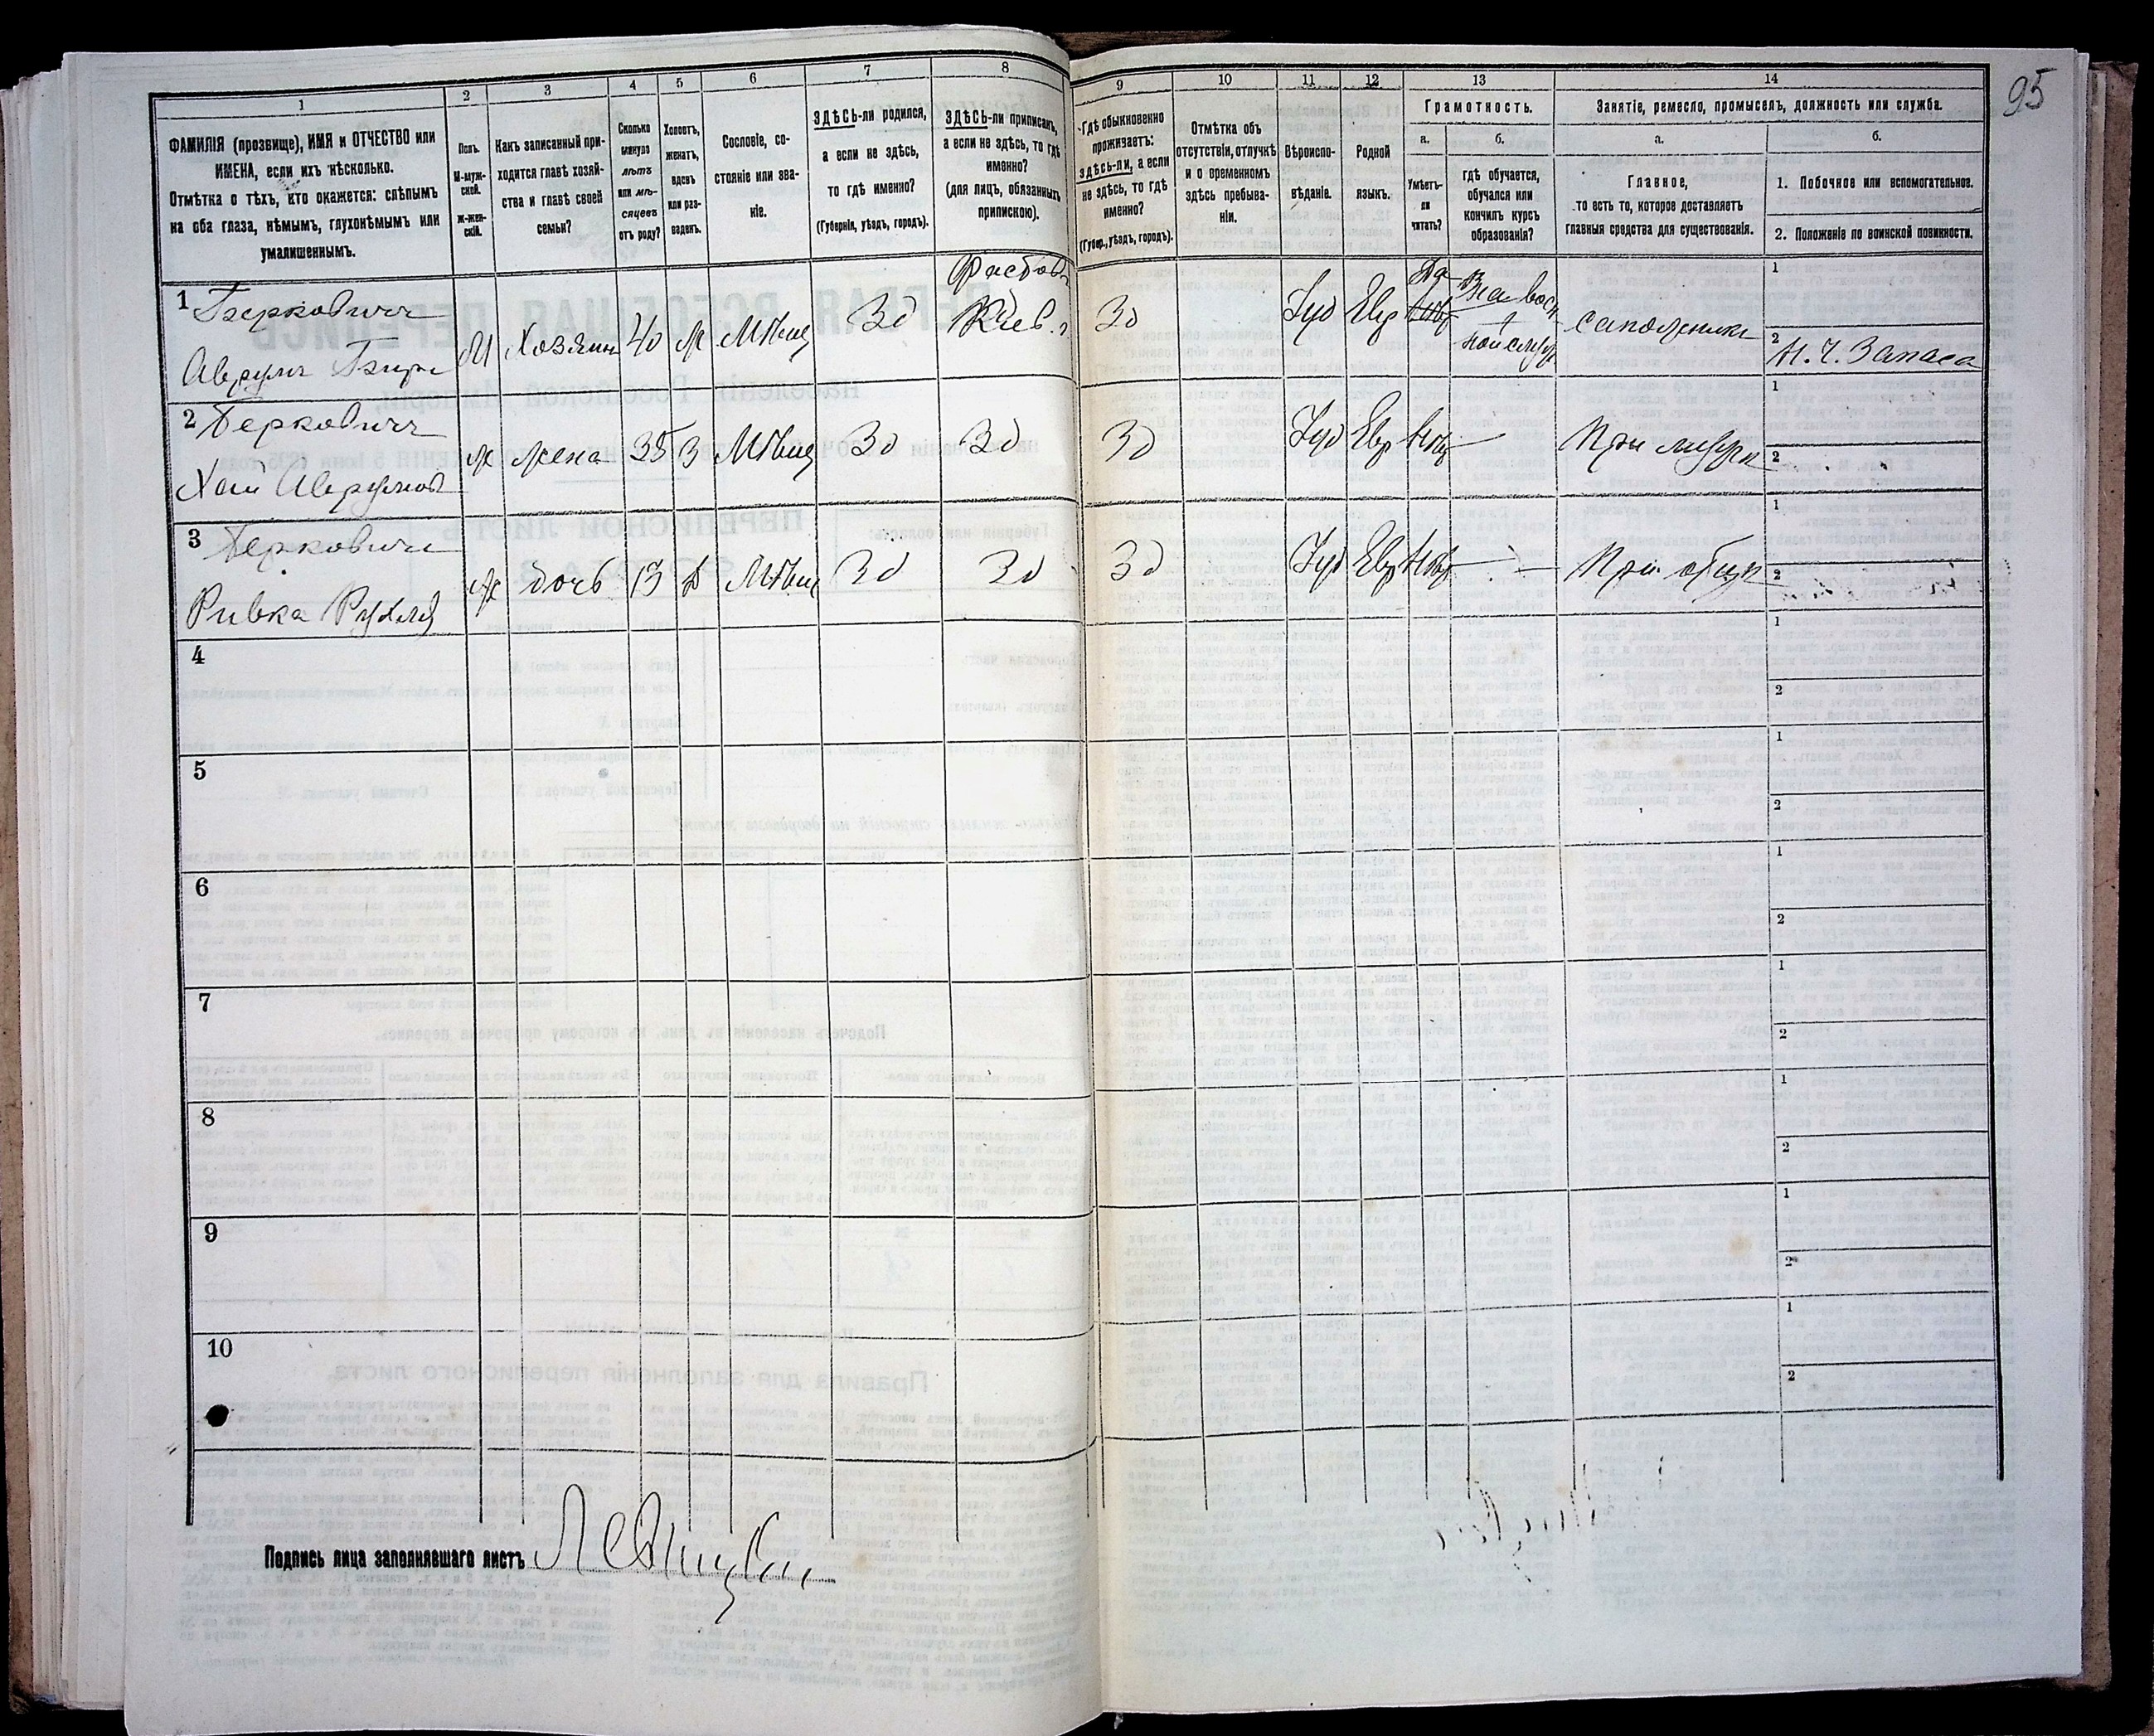 95
1
2
3
4
5
6
7
8
9
10
11
12
13
14
ФАМИЛІЯ (прозвище), ИМЯ и ОТЧЕСТВО или
ИМЕНА, если ихъ нѣсколько.
Отмѣтка о тѣхъ, кто окажется: слѣпымъ
на оба глаза, нѣмымъ, глухонѣмымъ или
умалишеннымъ.
Полъ.
М-муж-
ской.
Ж-жен-
скій.
Какъ записанный при-
ходится главѣ хозяй-
ства и главѣ своей
семьи?
Сколько
минуло
лѣтъ
или мѣ-
сяцевъ
отъ роду?
Холостъ,
женатъ,
вдовъ
или раз-
веденъ.
Сословіе, со-
стояніе или зва-
ніе.
ЗДѢСЬ-ли родился,
а если не здѣсь,
то гдѣ именно?
(Губернія, уѣздъ, городъ).
ЗДѢСЬ-ли приписанъ,
а если не здѣсь, то гдѣ
именно?
(для лицъ, обязанныхъ
припискою).
Гдѣ обыкновенно
проживаетъ:
здѣсь-ли, а если
не здѣсь, то гдѣ
именно?
(Губер., уѣздъ, городъ).
Отмѣтка объ
отсутствіи, отлучкѣ
и о временномъ
здѣсь пребыва-
ніи.
Вѣроиспо-
вѣданіе.
Родной
языкъ.
Грамотность.
а.
б.
Умѣетъ-
ли
читать?
гдѣ обучается,
обучался или
кончилъ курсъ
образованія?
Занятіе, ремесло, промыселъ, должность или служба.
а.
б.
Главное,
то есть то, которое доставляетъ
главныя средства для существованія.
1. Побочное или вспомогательное.
2. Положеніе по воинской повинности.
1 Берковичъ
Аврумъ
М Хозяинъ 40 Ж Мѣщ Зд
Фастовъ
Кіев. г.
Зд Іуд Евр
Да
На воен
ной служ
сапожникъ
1
2
Н. Ч. Запаса
2 Берковичъ
Хая Аврумов
Ж жена 35 З Мѣщ Зд Зд Зд Іуд Евр Нѣт — При мужѣ
1
2
3 Берковичъ
Ривка Рухля
Ж дочь 13 Д Мѣщ Зд Зд Зд Іуд Евр Нѣт — При отцѣ
1
2
4
1
2
5
1
2
6
1
2
7
1
2
8
1
2
9
1
2
10
1
2
Подпись лица заполнявшаго листъ